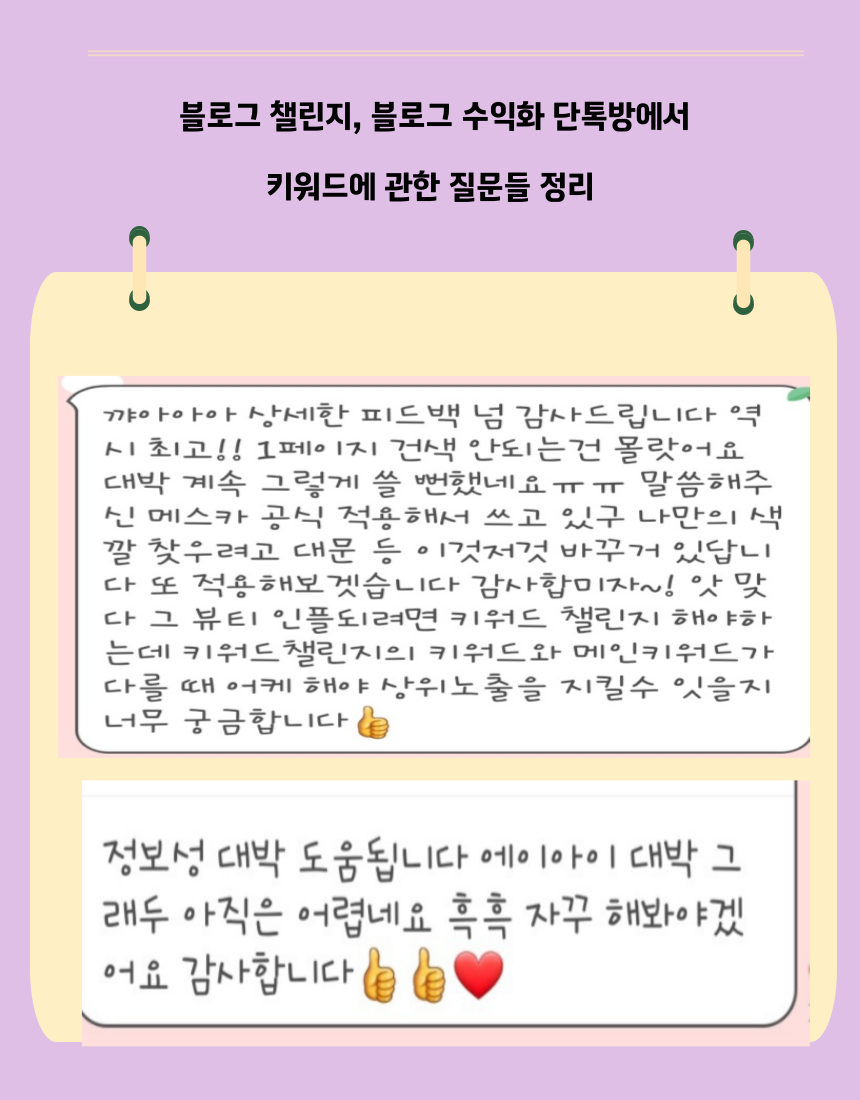 블로그 챌린지, 블로그 수익화 단톡방에서
키워드에 관한 질문들 정리
꺄아아아아 상세한 피드백 넘 감사드립니다 역
시 최고!! 1페이지 건색 안되는건 몰랏어요
대박 계속 그렇게 쓸 뻔했네요ㅠㅠ 말씀해주
신 메스카 공식 적용해서 쓰고 있구 나만의 색
깔 찾우려고 대문 등 이것저것 바꾸거 있답니
다 또 적용해보겟습니다 감사합미자~! 앗 맞
다 그 뷰티 인플되려면 키워드 챌린지 해야하
는데 키워드챌린지의 키워드와 메인키워드가
다를 때 어케 해야 상위노출을 지킬수 잇을지
너무 궁금합니다👍
정보성 대박 도움됩니다 에이아이 대박 그
래두 아직은 어렵네요 흑흑 자꾸 해봐야겠
어요 감사합니다👍👍❤️